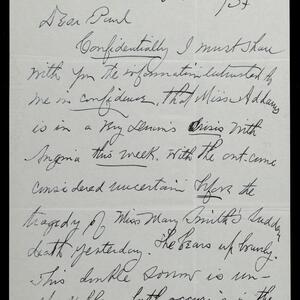 Dear Paul
Confidentially I must share
with you the information entrusted by
me in confidence, that Miss Addams
is in a very serious crisis with
Angina this week. With the out-come
considered uncertain before the
tragedy of Miss Mary Smith's sudden
death yesterday. She bears up bravely.
This double sorrow is un-
both
in the